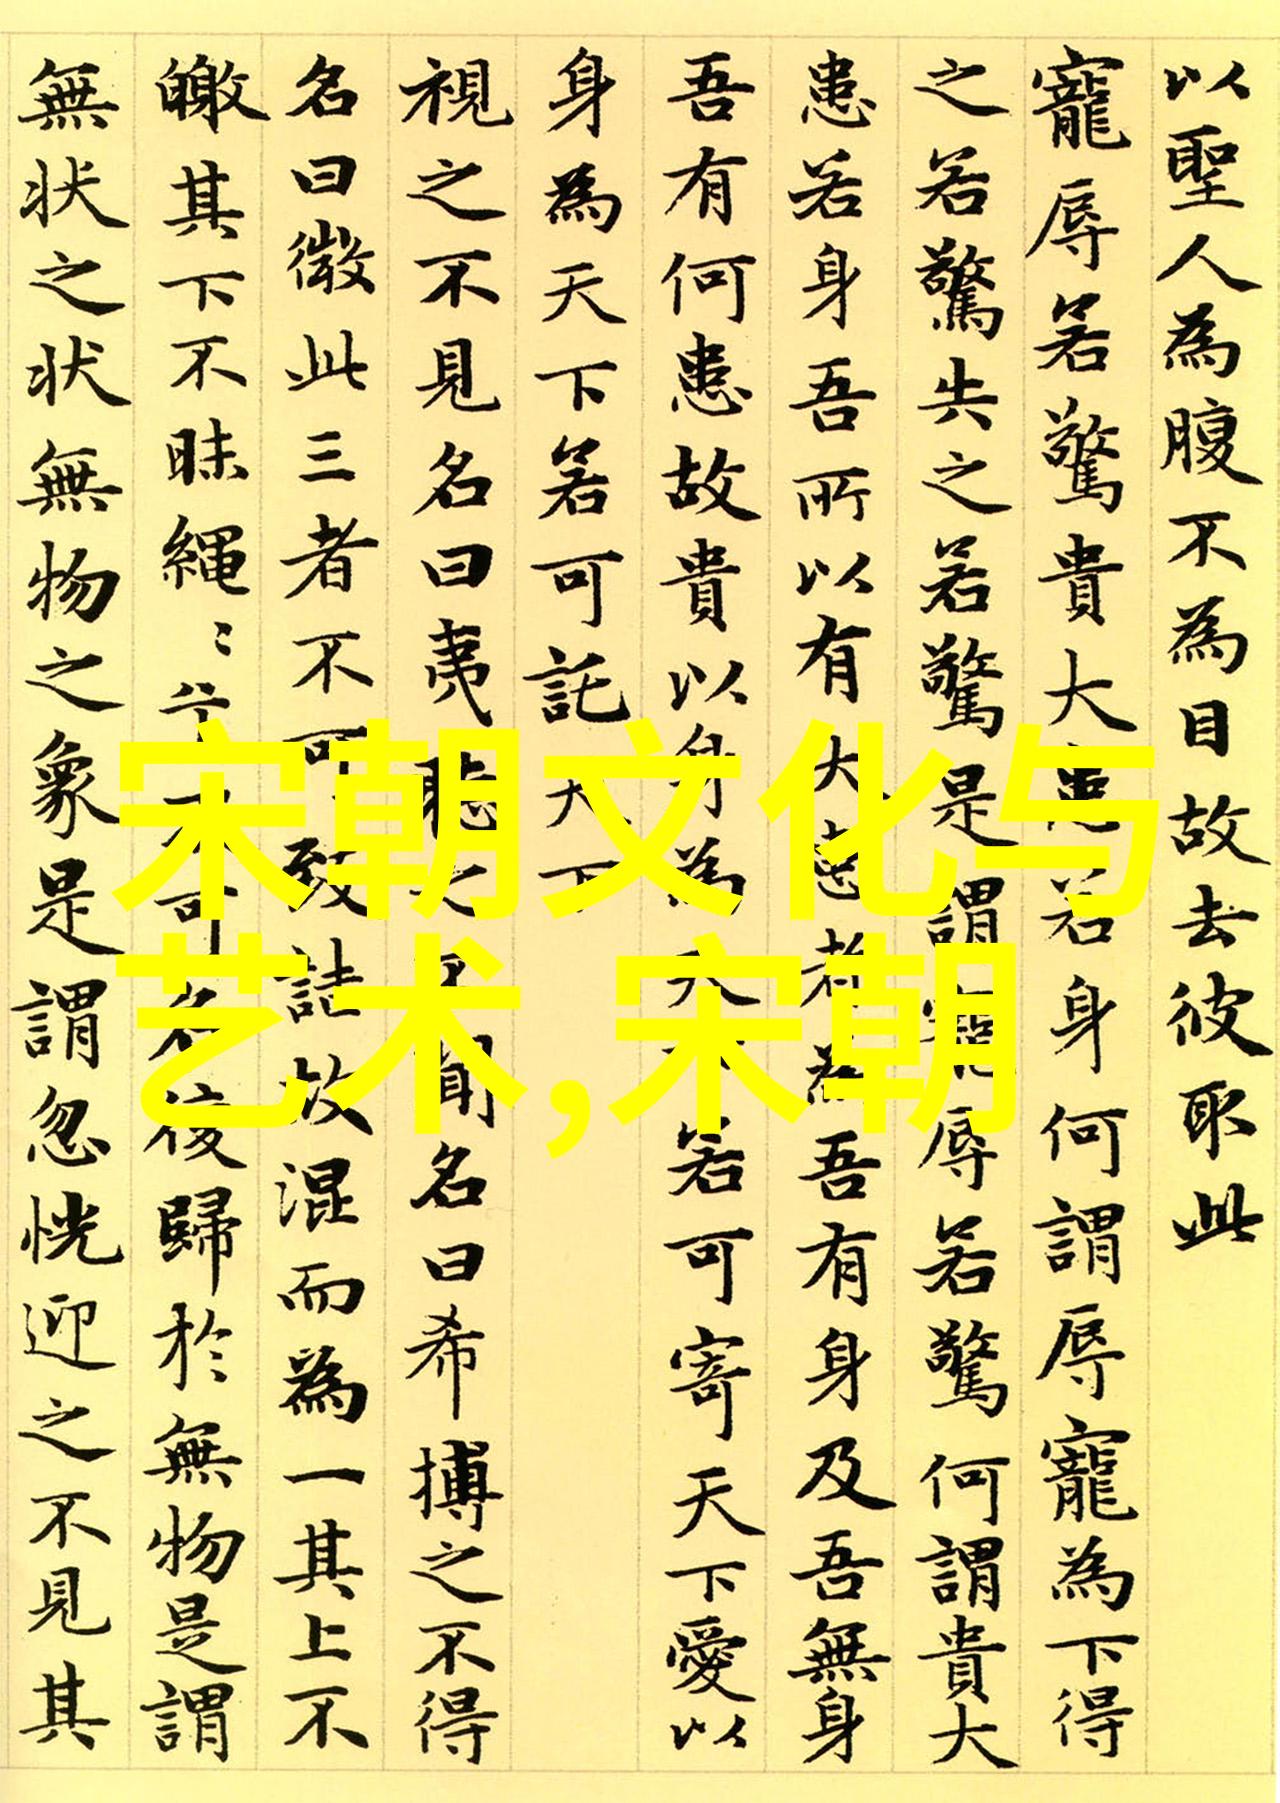 以聖人為腹不為目故去彼取此
寵辱若驚貴大患若身何謂辱寵為下得
之若驚失之若驚是謂寵辱若驚何謂貴大
患若身吾所以有大患者為吾有身及吾無身
吾有何患故貴以身為天下若可寄天下愛以
身為天下若可託天下
視之不見名曰夷聽之不聞名曰希搏之不得
名曰微此三者不可致詰故混而為一其上不
皦其下不昧繩〻兮不可名復歸於無物是謂
無状之状無物之象是謂忽恍迎之不見其
宋朝文化与
艺术,宋朝